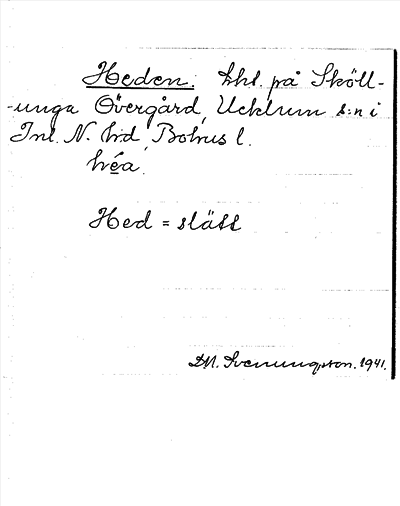 Heden. lht. på Sköll-
-unga Övergård, Ucklum s:n i
Inl. N. hd, Bohus l.
héa.
Hed = slätt
D.N. Svenungsson. 1941.